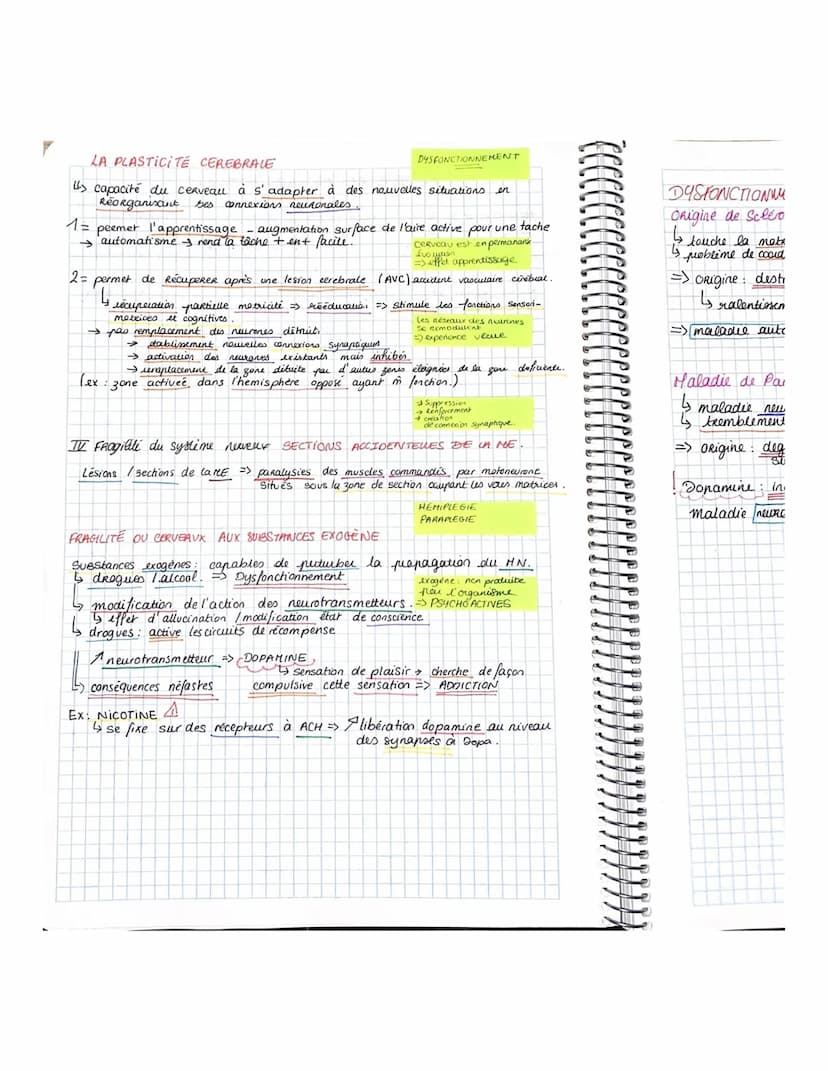 LA PLASTICITÉ CEREBRALE
DYSFONCTIONNEMENT
↳ capacité du cerveau à s'adapter à des nouvelles situations en
RÉORGANISANT ses connexions neuronales.
1 = peemet l'apprentissage - augmentation surface de l'aire active pour une tache
→ automatisme → rend la tâche + en + facile.
cerveau est en permanance
évolution
=> effet apprentissage
2 = permet de RÉCUPERER après une lesion cerebrale (AVC) accident vasculaire cérébral.
↳ récupération partielle motricité => rééducation => stimule les fonctions sensori-
motrices et cognitives.
les réseaux des neurones
se remodulent
=> expérience vécue
→ pas remplacement des neurones détruits
→ établissement nouvelles connexions synaptiques
→ activation des neurones existants mais inhibés.
→ remplacement de la zone détuite par d'autres zones éloignées de la zone déficiente.
(ex : zone activée dans l'hémisphère opposé ayant m̂ fonction.)
→ Suppression
→ Renforcement
→ création
de connexion synaptique.
IV Fragilité du système nerveux SECTIONS ACCIDENTELLES DE LA ME.
Lésions / Sections de la ME => paralysies des muscles commandés par motoneurone
situés sous la zone de section coupant les voies motrices.
HÉMIPLEGIE
PARAPLEGIE
FRAGILITÉ DU CERVEAUX AUX SUBSTANCES EXOGÈNE
Substances exogènes : capables de perturber la propagation du MN.
↳ drogues / alcool. => Dysfonctionnement
exogène : non produite
par l'organisme
=> PSYCHOACTIVES
↳ modification de l'action des neurotransmetteurs.
↳ effet d'allucination / modification état de conscience
↳ drogues : active les circuits de récompense
↗ neurotransmetteur => DOPAMINE
↳ sensation de plaisir → cherche de façon
↳ conséquences néfastes compulsive cette sensation => ADDICTION
Ex : NICOTINE ⚠
↳ se fixe sur des récepteurs à ACH => ↗ libération dopamine au niveau
des synapses à Dopa.
DYSFONCTIONN
Origine de Scléro
↳ touche la mot
↳ problème de coord
=> ORIGINE : dest
↳ ralentissem
=> maladie auto
Maladie de Pa
↳ maladie neu
↳ tremblement
=> ORIGINE : dég
! Dopamine : in
Maladie neuro